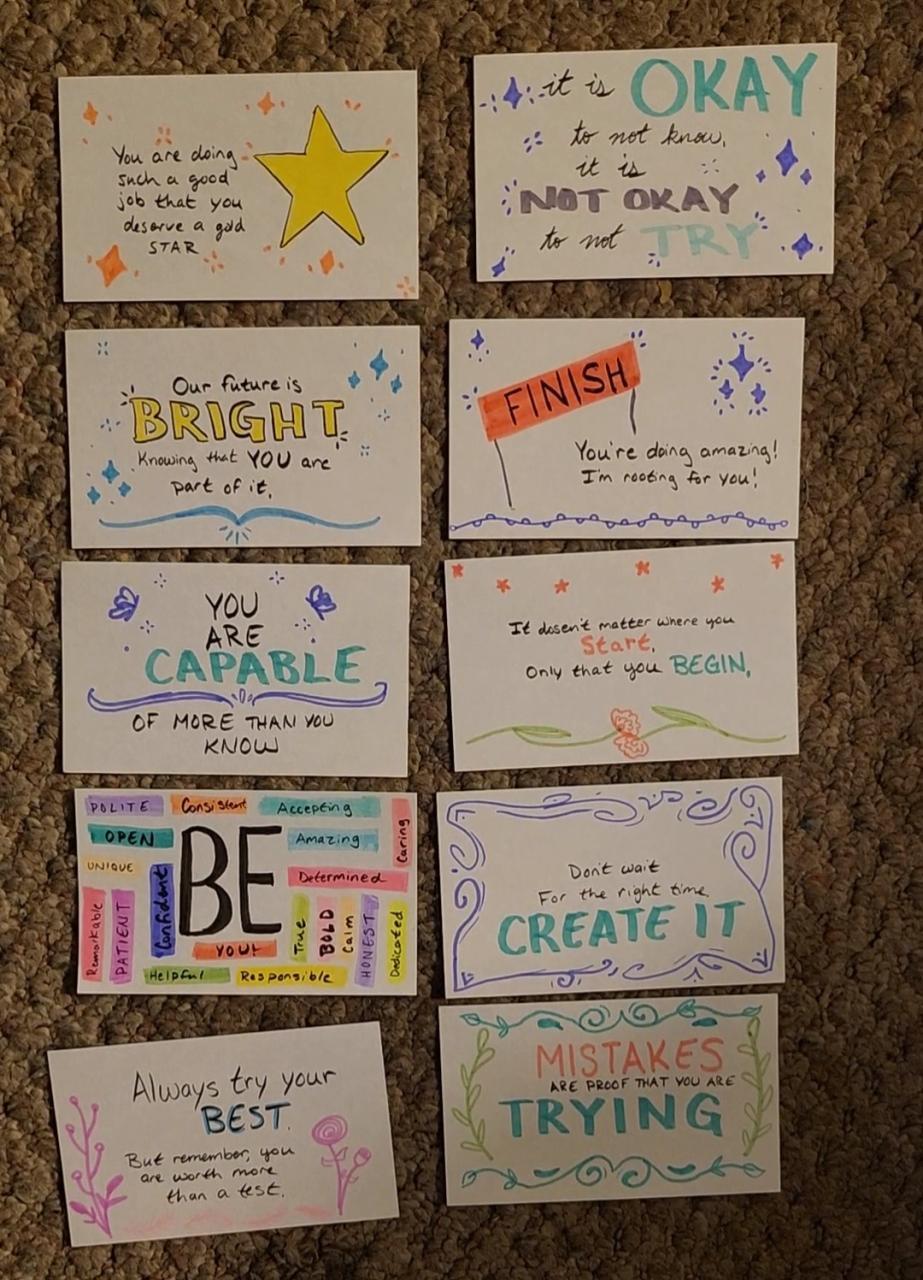 You are doing
such a good
job that you
deserve a gold
STAR
it is OKAY
to not know,
it is
NOT OKAY
to not TRY
Our future is
BRIGHT
Knowing that YOU are
part of it.
FINISH
You're doing amazing!
I'm rooting for you!
YOU
ARE
CAPABLE
OF MORE THAN YOU
KNOW
It dosen't matter where you
Start,
Only that you BEGIN.
POLITE
Consistent
Accepting
Caring
OPEN
Amazing
UNIQUE
BE
Determined
Remarkable
PATIENT
Confident
YOU!
True
BOLD
Calm
HONEST
Dedicated
Helpful
Responsible
Don't wait
For the right time
CREATE IT
Always try your
BEST.
But remember, you
are worth more
than a test.
MISTAKES
ARE PROOF THAT YOU ARE
TRYING